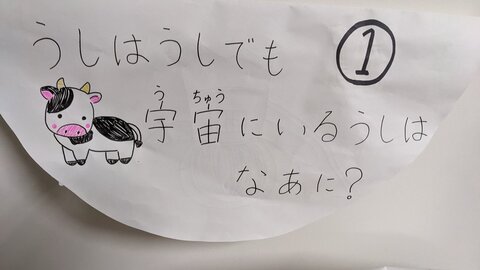 うしはうしでも
①
うちゅう
宇宙にいるうしは
なあに?